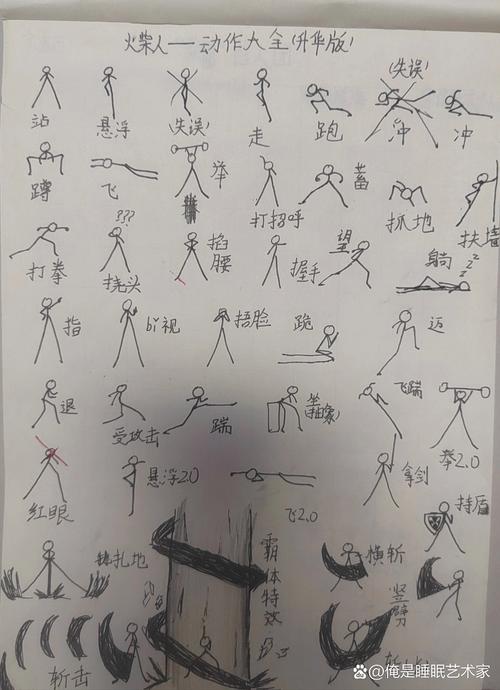 火柴人——动作大全(升华版)
(失误)
站 悬浮 (失误) 走 跑 冲 冲
蹲 飞 举 打招呼 蓄 抓地 扶墙
???
打拳 挠头 掐腰 握手 望 躺 zzz
指 bi视 捂脸 跪 迈
退 受攻击 踹 坐(抽象) 飞踹 举2.0
红眼 悬浮2.0 飞2.0 拿剑 持盾
扎地 霸体特效 横斩 竖劈
斩击
@俺是睡眠艺术家